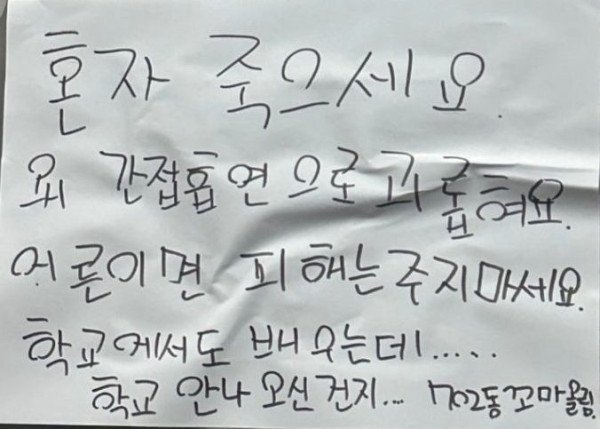 혼자 죽으세요.
왜 간접흡연으로 괴롭혀요.
어른이면 피해는 주지마세요.
학교에서도 배우는데.....
학교 안나오신건지... 702동꼬마올림.